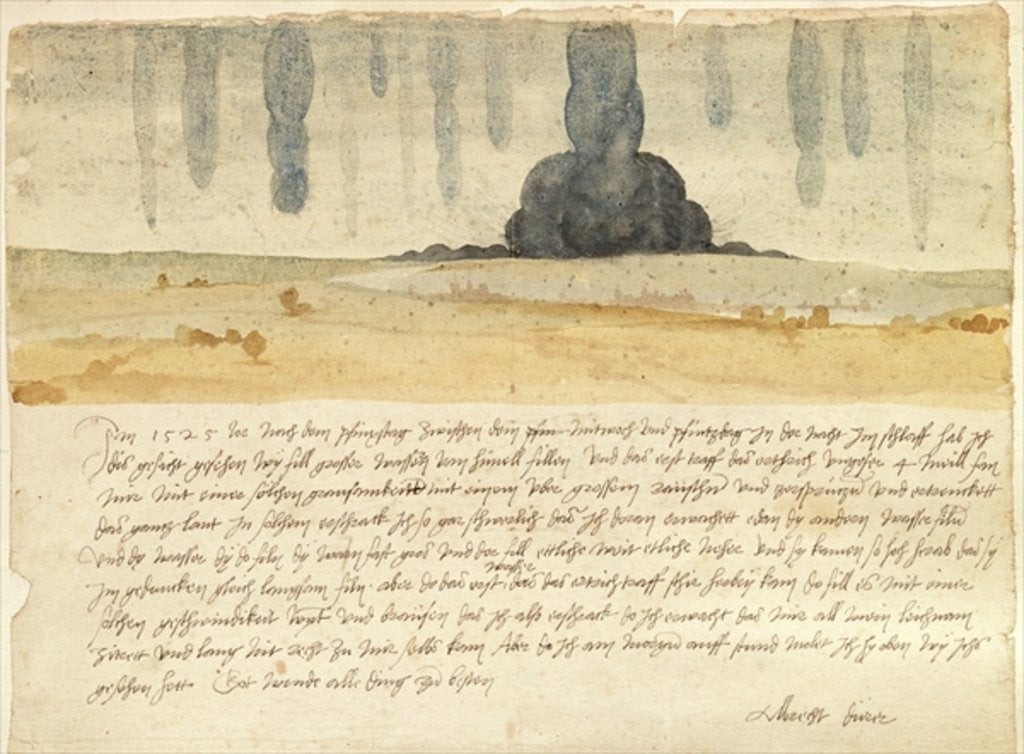 Im 1525 Jor nach dem pfinxstag zwischen dem mitwoch und pfintzdag in der nacht im schlaff hab ich
dis gesicht gesehen wy fill grosser wassern vam himell fillen Und das erst traff das erthrich ungefer 4 meill fan
mir mit einer solchen grausamkeitt mit einem uber grossem raüschn und zersprützn und ertrenckett
das gantz lant In solchem erschrack ich so gar schwerlich das ich doran erwachett edan dy andern wasser filn
Und dy wasser dy do filn dy warn fast gros und der fill ettliche weit etliche neher und sy kamen so hoch herab das sy
im gedancken gleich langsam filn aber do das erst wasser das das ertrich traff schir herbey kam do fill es mit einer
solchen geschwindikeit wynt und braüsen das ich also erschrack do ich erwacht das mir all mein leichnam
zitrett und lang nit recht zu mir selbs kam Aber do ich am morgn auff stund molet ich hy oben wy ichs
gesehen hett Got wende alle ding zu besten
Albrecht dürer